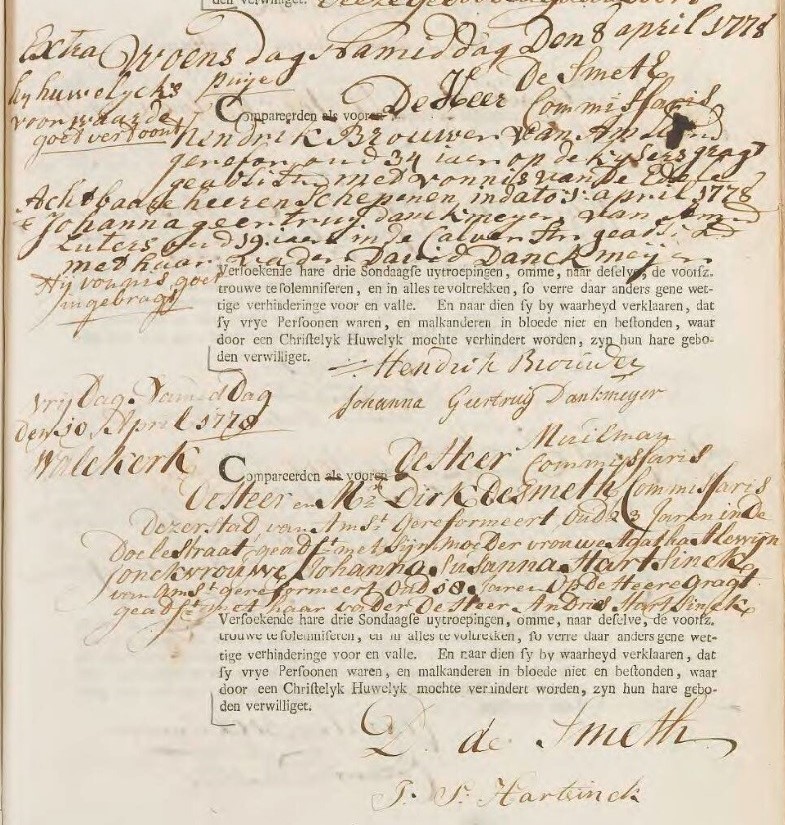 den verwilliget.
Extra Woensdag Namiddag Den 8 april 1778
by huwelycks puye De Smeth
voorwaarde Compareerden als vooren De Heer Commissaris
goet vertoont
Hendrik Brouwer van Amsterd
gerefor oud 34 iaer op de Kysersgragt
geadsist met vonnis van de Edele
Achtbaare heeren Schepenen in dato 8 april 1778
& Johanna geertruy danckmeyer van Amsd
Luters oud 19 iaer in de Calverstr geadsist
met haar vader David Danckmeijer
Hy vonnis goet
ingebragt
Versoekende hare drie Sondaagse uytroepingen, omme, naar deselve, de voorsz.
trouwe te solemniseren, en in alles te voltrekken, so verre daar anders gene wet-
tige verhinderinge voor en valle. En naar dien sy by waarheyd verklaaren, dat
sy vrye Persoonen waren, en malkanderen in bloede niet en bestonden, waar
door een Christelyk Huwelyk mochte verhindert worden, zyn hun hare gebo-
den verwilliget.
Hendrik Brouwer
Johanna Geertruy Dankmeyer
Vrydag Namiddag
den 10 April 1778
Walekerk
Muilman
Compareerden als vooren De Heer Commissaris
De Heer en Mr Dirk de Smeth Commissaris
dezer stad, van Amst Gereformeert, Oud 23 Jaren in de
Doelestraat, geadst met Syn moeder vrouwe Agatha Alewijn
Jonckvrouwe Johanna Susanna Hartsinck
van Amst gereformeert Oud 18 Jaren Op de Heere Gragt
geadst met haar vader De Heer Andries Hartsinck
Versoekende hare drie Sondaagse uytroepingen, omme, naar deselve, de voorsz.
trouwe te solemniseren, en in alles te voltrekken, so verre daar anders gene wet-
tige verhinderinge voor en valle. En naar dien sy by waarheyd verklaaren, dat
sy vrye Persoonen waren, en malkanderen in bloede niet en bestonden, waar
door een Christelyk Huwelyk mochte verhindert worden, zyn hun hare gebo-
den verwilliget.
D. de Smeth
J. S. Hartsinck